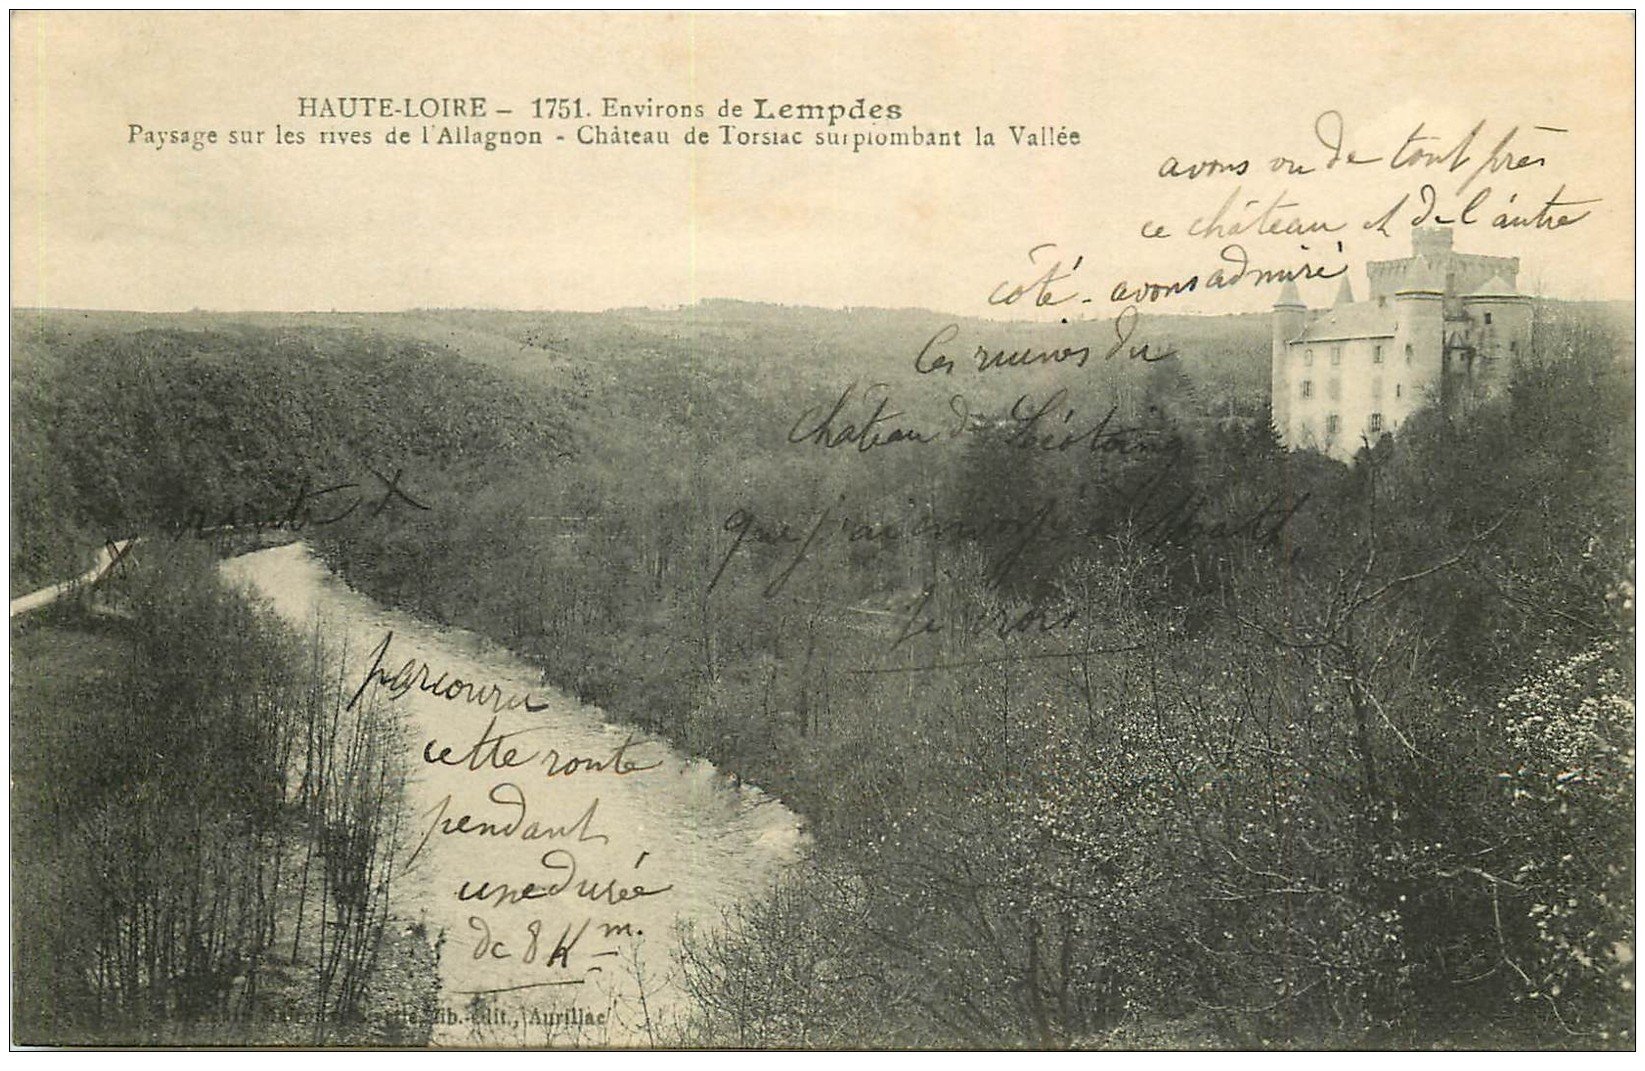 HAUTE-LOIRE - 1751. Environs de Lempdes
Paysage sur les rives de l'Allagnon - Château de Torsiac surplombant la Vallée
avons vu de tout près
ce château et de l'autre
côté - avons admiré
les ruines du
château de Léotoing
que j'ai envoyé à
je crois
route X
X
parcouru
cette route
pendant
une durée
de 8 Km.
lib.-Edit., Aurillac